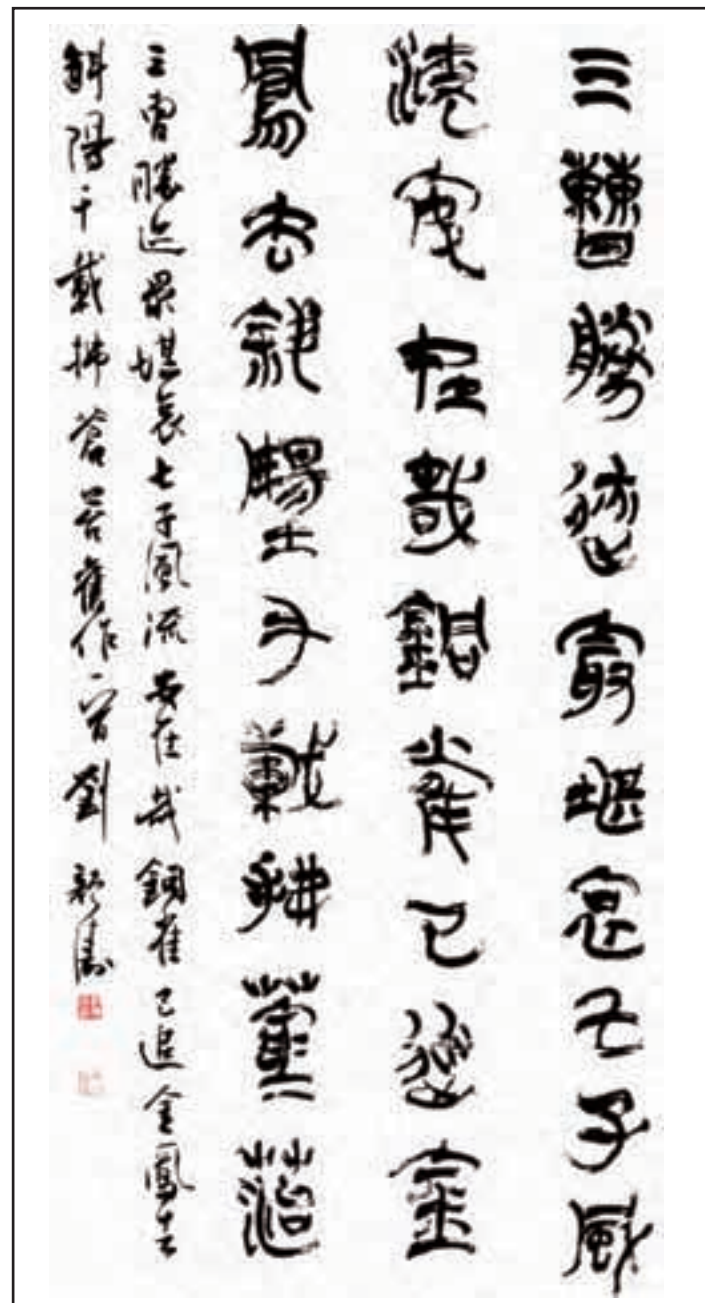 三曹勝迹最堪哀七子風
流安在哉銅雀已追金
鳳去斜陽千載拂蒼苔
三曹勝迹最堪哀七子風流安在哉銅雀已追金鳳去
斜陽千載拂蒼苔舊作一首劉